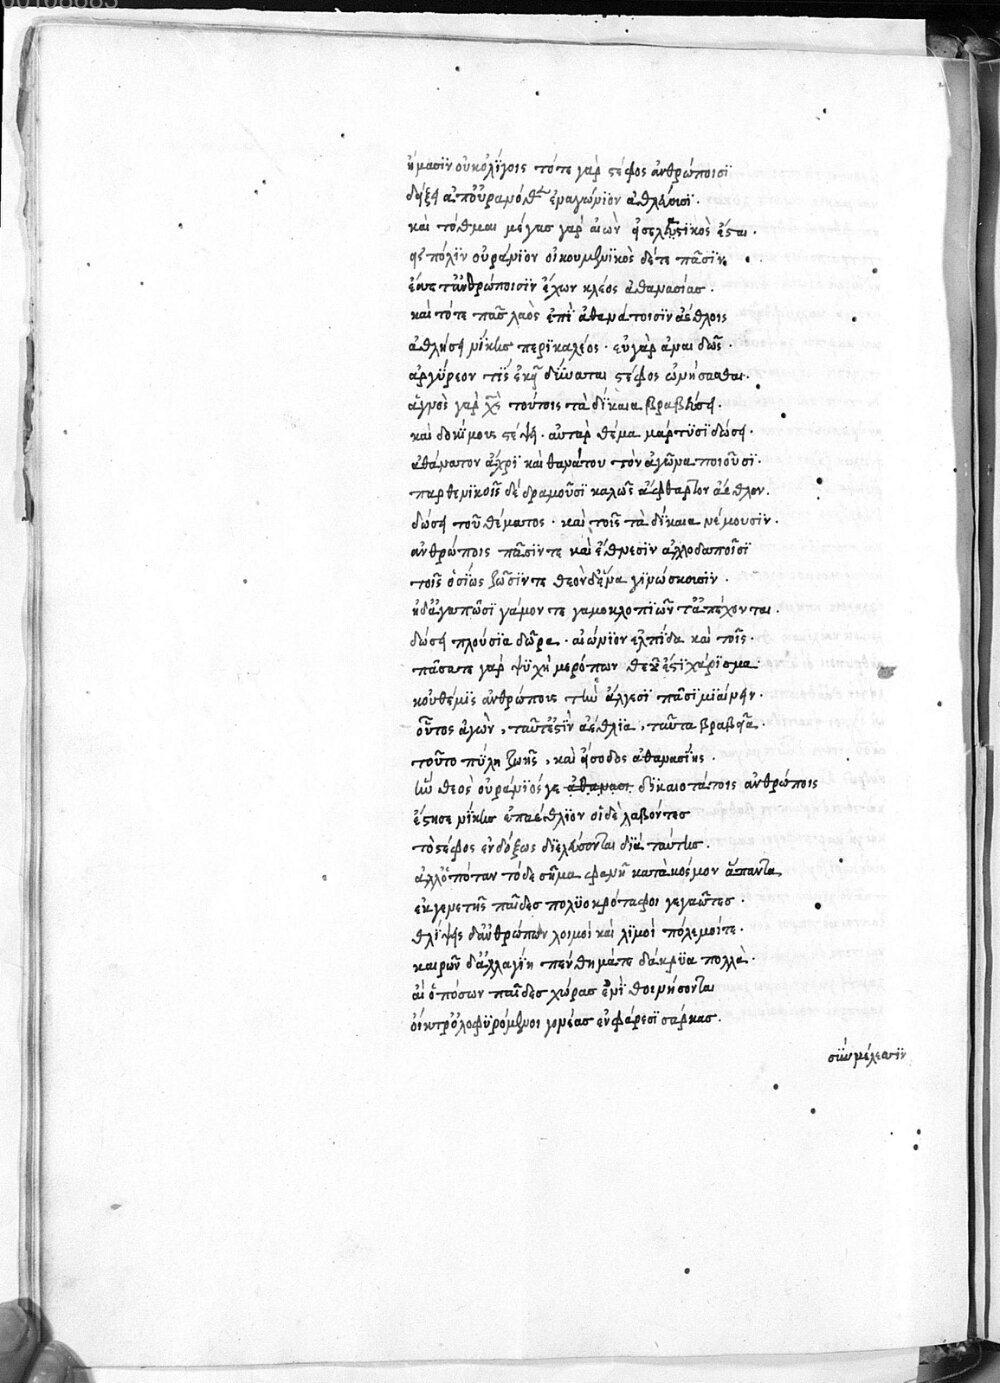 ἤμασϊν οὐκολίγοις τότε γὰρ στέφος ἀνθρώποισϊ
δείξει ἀπ' οὐρανόθεν ἐναγώνϊον ἀθλεύουσϊ.
καὶ τόθεμαι μέγασ γὰρ αἰὼν εἰσελαστϊκὸς ἔσται.
εἰς πόλϊν οὐράνϊον οἰκουμενϊκὸς δέτε πᾶσϊν.
ἔσσετ' ἀνθρώποισϊν ἔχων κλέος ἀθανασίασ.
καὶ τότε πᾶσ λαὸς ἐπὶ ἀθανάτοισϊν ἀέθλοις
ἀθλήσει νίκησ περϊκαλέος. εὐγὰρ ἀναιδῶς.
ἀργύρεον τὶς ἐκεῖ δύναται στέφος ὠνήσασθαι.
ἁγνὸς γὰρ χς τούτοις τὰ δίκαια βραβεύσει.
καὶ δοκίμους στέψει. αὐτὰρ θέμα μάρτυσϊ δώσει.
ἀθάνατον ἄχρϊ καὶ θανάτου τὸν ἀγῶνα ποιοῦσϊ.
παρθενϊκοῖς δὲ δραμοῦσϊ καλῶς ἄφθαρτον ἄεθλον.
δώσει τοῦ θέματος. καὶ τοῖς τὰ δίκαια νέμουσϊν.
ἀνθρώποις πᾶσϊν τε καὶ ἔθνεσϊν ἀλλοδαποῖσϊ
τοῖς ὁσίως ζῶσϊν τε θεὸν δ' ἕνα γϊνώσκουσϊν.
οἳ δ' ἀγαπῶσϊ γάμον τε γαμοκλοπϊῶν τ' ἀπέχονται.
δώσει πλούσϊα δῶρα. αἰώνϊον ἐλπίδα καὶ τοῖς.
πᾶσα τε γὰρ ψϋχὴ μερόπων θεοῦ ἐστὶ χάρϊσμα
κοὐθέμϊς ἀνθρώποις τὴν ἄλγεσϊ πᾶσϊ μϊαίνειν.
οὗτος ἀγών, ταῦτ' ἐστὶν ἀέθλϊα, ταῦτα βραβεῖα.
τοῦτο πύλη ζωῆς, καὶ εἴσοδος ἀθανασίης.
ἣν θεὸς οὐράνϊός γε ἀθανασι δϊκαιοτάτοις ἀνθρώποις
ἔστησε νίκησ ἐπαέθλϊον οἱ δὲ λαβόντεσ
τὸ στέφος ἐνδόξως δϊελεύσονται διὰ ταύτησ.
ἀλλ' ὁπόταν τόδε σῆμα φανῇ κατὰ κόσμον ἅπαντα
ἐκγενετῆς παῖδεσ πολϋοκρόταφοι γεγαῶτεσ.
θλίψεις δ' ἀνθρώπων λοιμοὶ καὶ λϊμοὶ πόλεμοί τε.
καιρῶν δ' ἀλλαγίη πενθήματε δάκρϋα πολλὰ.
αἲ ὁπόσων παῖδεσ χώρασ ἔνϊ θοινήσονται
οἴκτρ' ὀλοφϋρόμενοι γονέασ ἐν φάρεσϊ σάρκασ.
σὺν μέλεσϊν